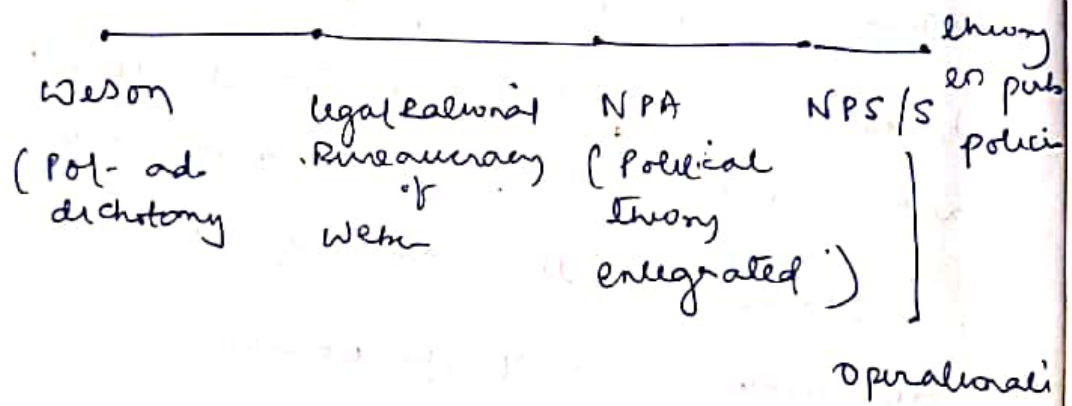 Wilson
(Pol- ad.
dichotomy
legal rational
Bureaucracy
of
Weber
NPA
(Political
theory
integrated)
NPS/S
theory
in pub
polici
operationali